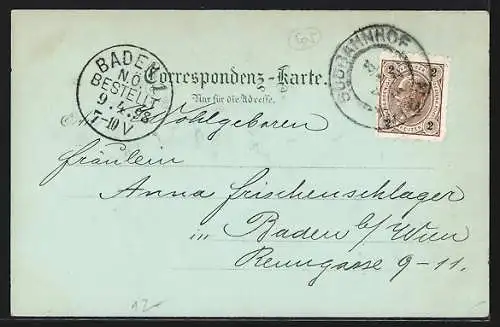 SÜDBAHNHOF
BADEN 1
N.Ö.
BESTELLT
9. 4. 98
7-10 V
Correspondenz-Karte.
Nur für die Adresse.
2 2
2 2
Wohlgeboren
Fräulein
Anna Frischenschlager
in Baden b/Wien
Renngasse 9-11.
12-